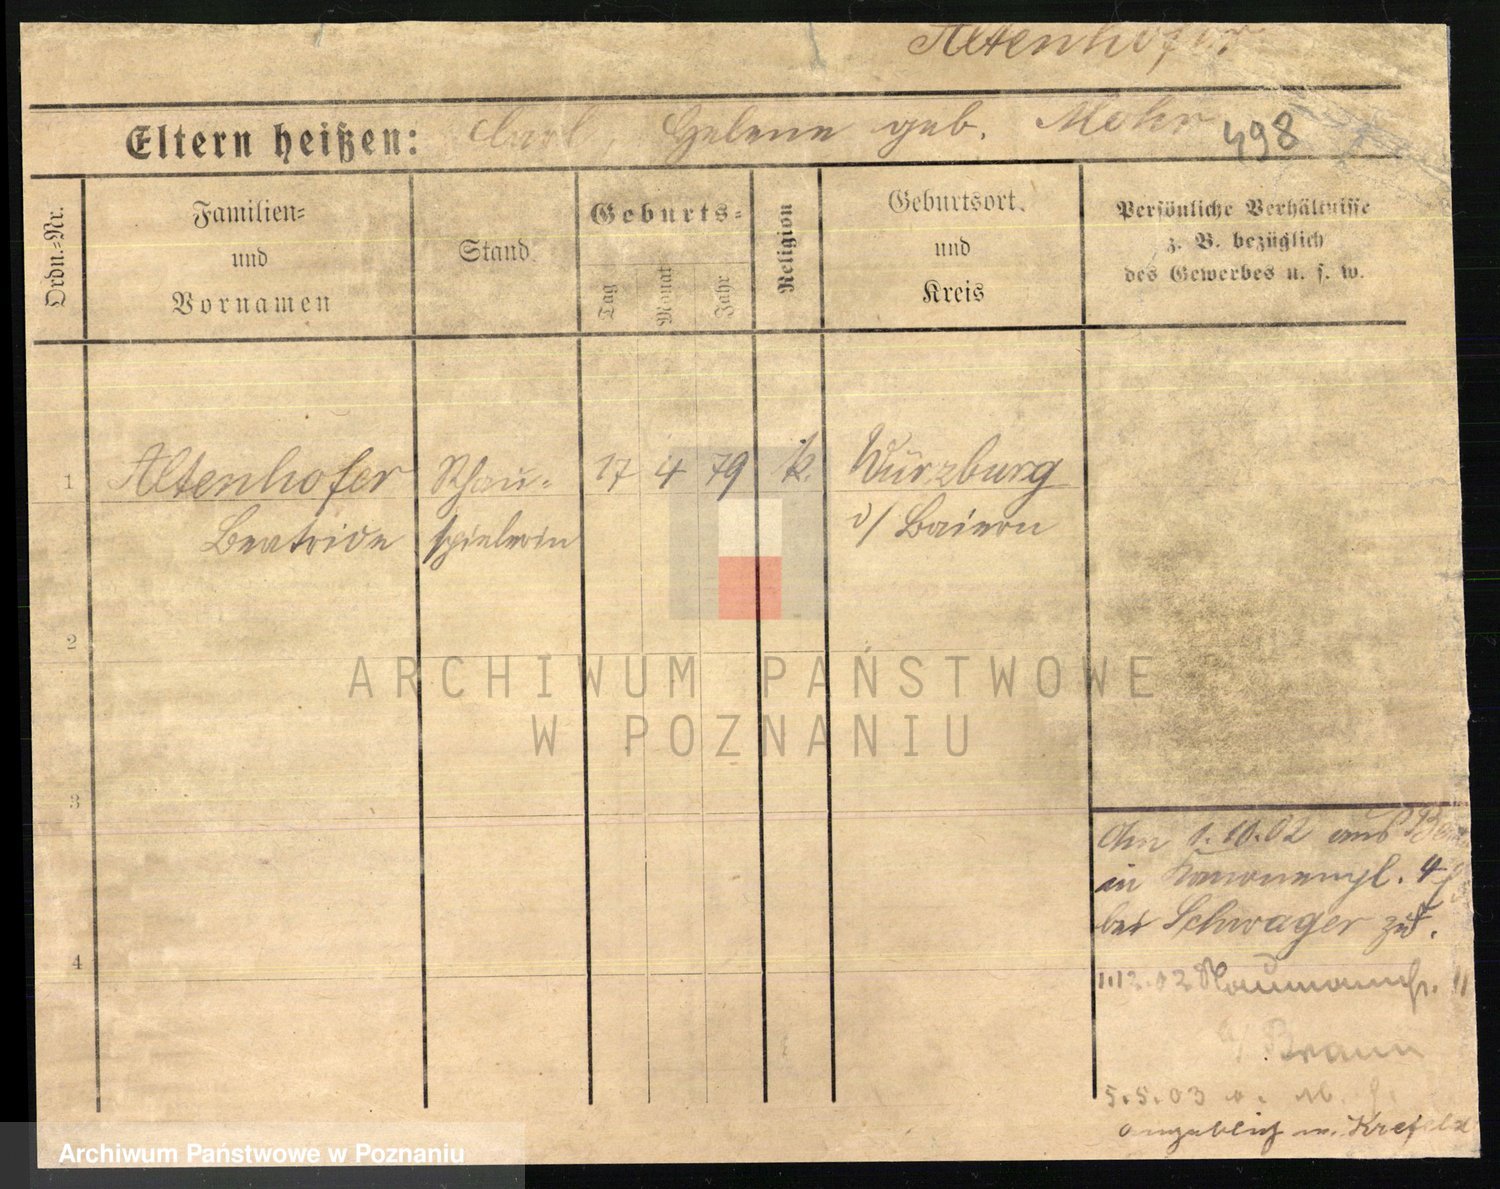 Altenhofer
Eltern heißen: Carl, Helene geb. Mohr 498
Ordn.=Nr.
Familien=
und
Vornamen
Stand
Geburts=
Tag
Monat
Jahr
Religion
Geburtsort
und
Kreis
Persönliche Verhältnisse
z. B. bezüglich
des Gewerbes u. s. w.
1 Altenhofer Schau- 17 4 79 k. Würzburg
Beatrice spielerin i/ Baiern
2
3
4
Am 1.10.02 aus
in Kanonenpl. 4
bei Schwager zu.
1.12.02 Naumannstr. 11
b/ Braun
5.5.03
angeblich n. Krefeld
ARCHIWUM PAŃSTWOWE
W POZNANIU
Archiwum Państwowe w Poznaniu